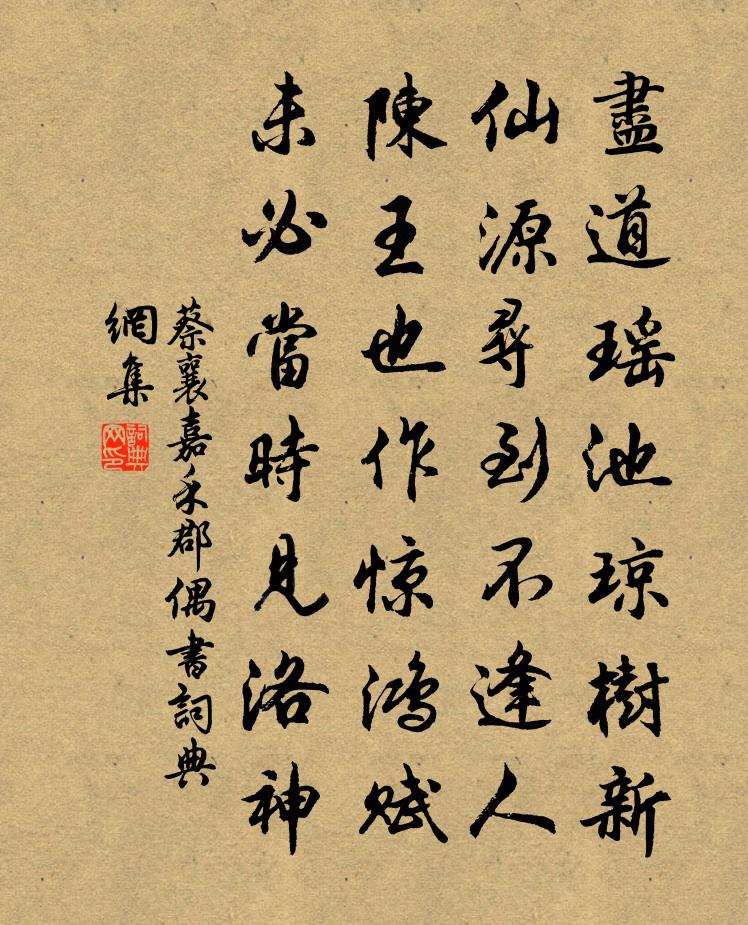 盡道瑶池琼樹新
仙源尋到不逢人
陳王也作惊鴻赋
未必當時見洛神
蔡襄嘉禾郡偶書詞典
網集
詞典
网印